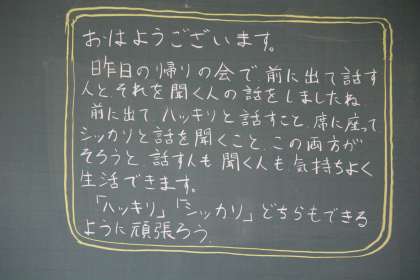 おはようございます。
昨日の帰りの会で、前に出て話す
人とそれを聞く人の話をしましたね。
前に出て、ハッキリと話すこと、席に座って、
シッカリと話を聞くこと、この両方が
そろうと、話す人も聞く人も、気持ちよく
生活できます。
「ハッキリ」「シッカリ」どちらもできる
ように頑張ろう。